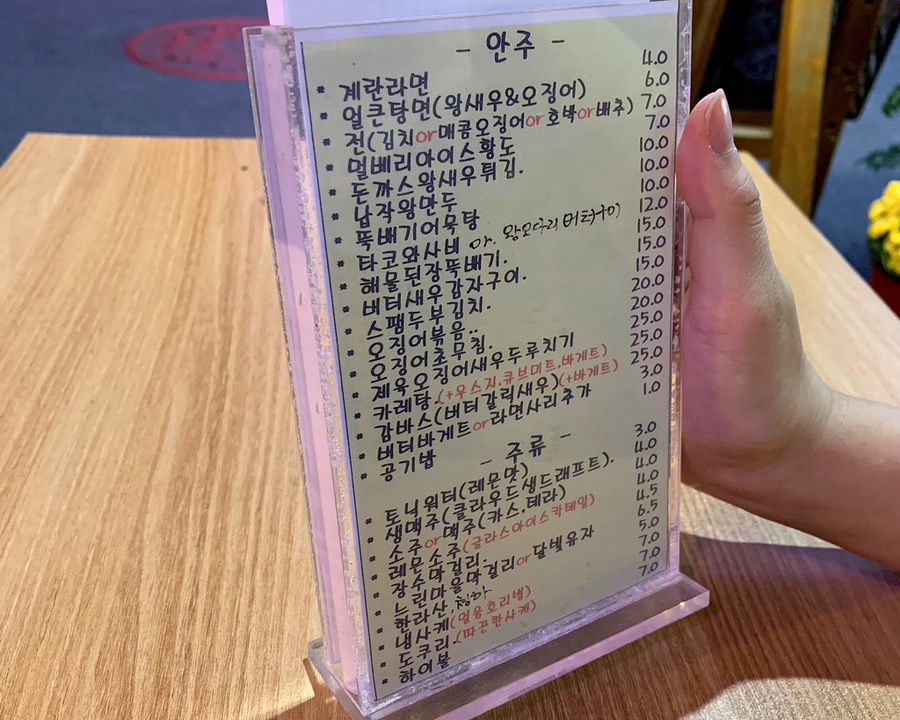 - 안주 -
* 계란라면 4.0
* 얼큰탕면(왕새우&오징어) 6.0
* 전(김치or매콤오징어or호박or배추) 7.0
* 멀베리아이스황도 7.0
* 돈까스왕새우튀김. 10.0
* 납작왕만두 10.0
* 뚝배기어묵탕 10.0
* 타코와사비 or. 왕오다리 버터구이 12.0
* 해물된장뚝배기. 15.0
* 버터새우감자구이. 15.0
* 스팸두부김치. 15.0
* 오징어볶음.. 20.0
* 오징어초무침. 20.0
* 제육오징어새우두루치기 25.0
* 카레탕.(+우스지.큐브미트.바게트) 25.0
* 감바스(버터갈릭새우)(+바게트) 25.0
* 버터바게트or라면사리추가 3.0
* 공기밥 1.0
- 주류 -
* 토닉워터(레몬맛) 3.0
* 생맥주(클라우드생드래프트). 4.0
* 소주or맥주(카스,테라) 4.0
* 레몬소주(글라스아이스칵테일) 4.0
* 장수마걸리. 4.5
* 느린마을마걸리or달빛유자 6.5
* 한라산,청하 5.0
* 냉사케(얼음호리병) 7.0
* 도쿠리.(따끈한사케) 7.0
* 하이볼 7.0